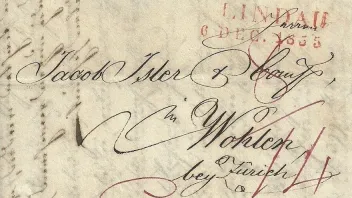 LINDAU
6 DEC. 1855
Herren
Jacob Isler & Comp
in
Wohlen
bey Zürich